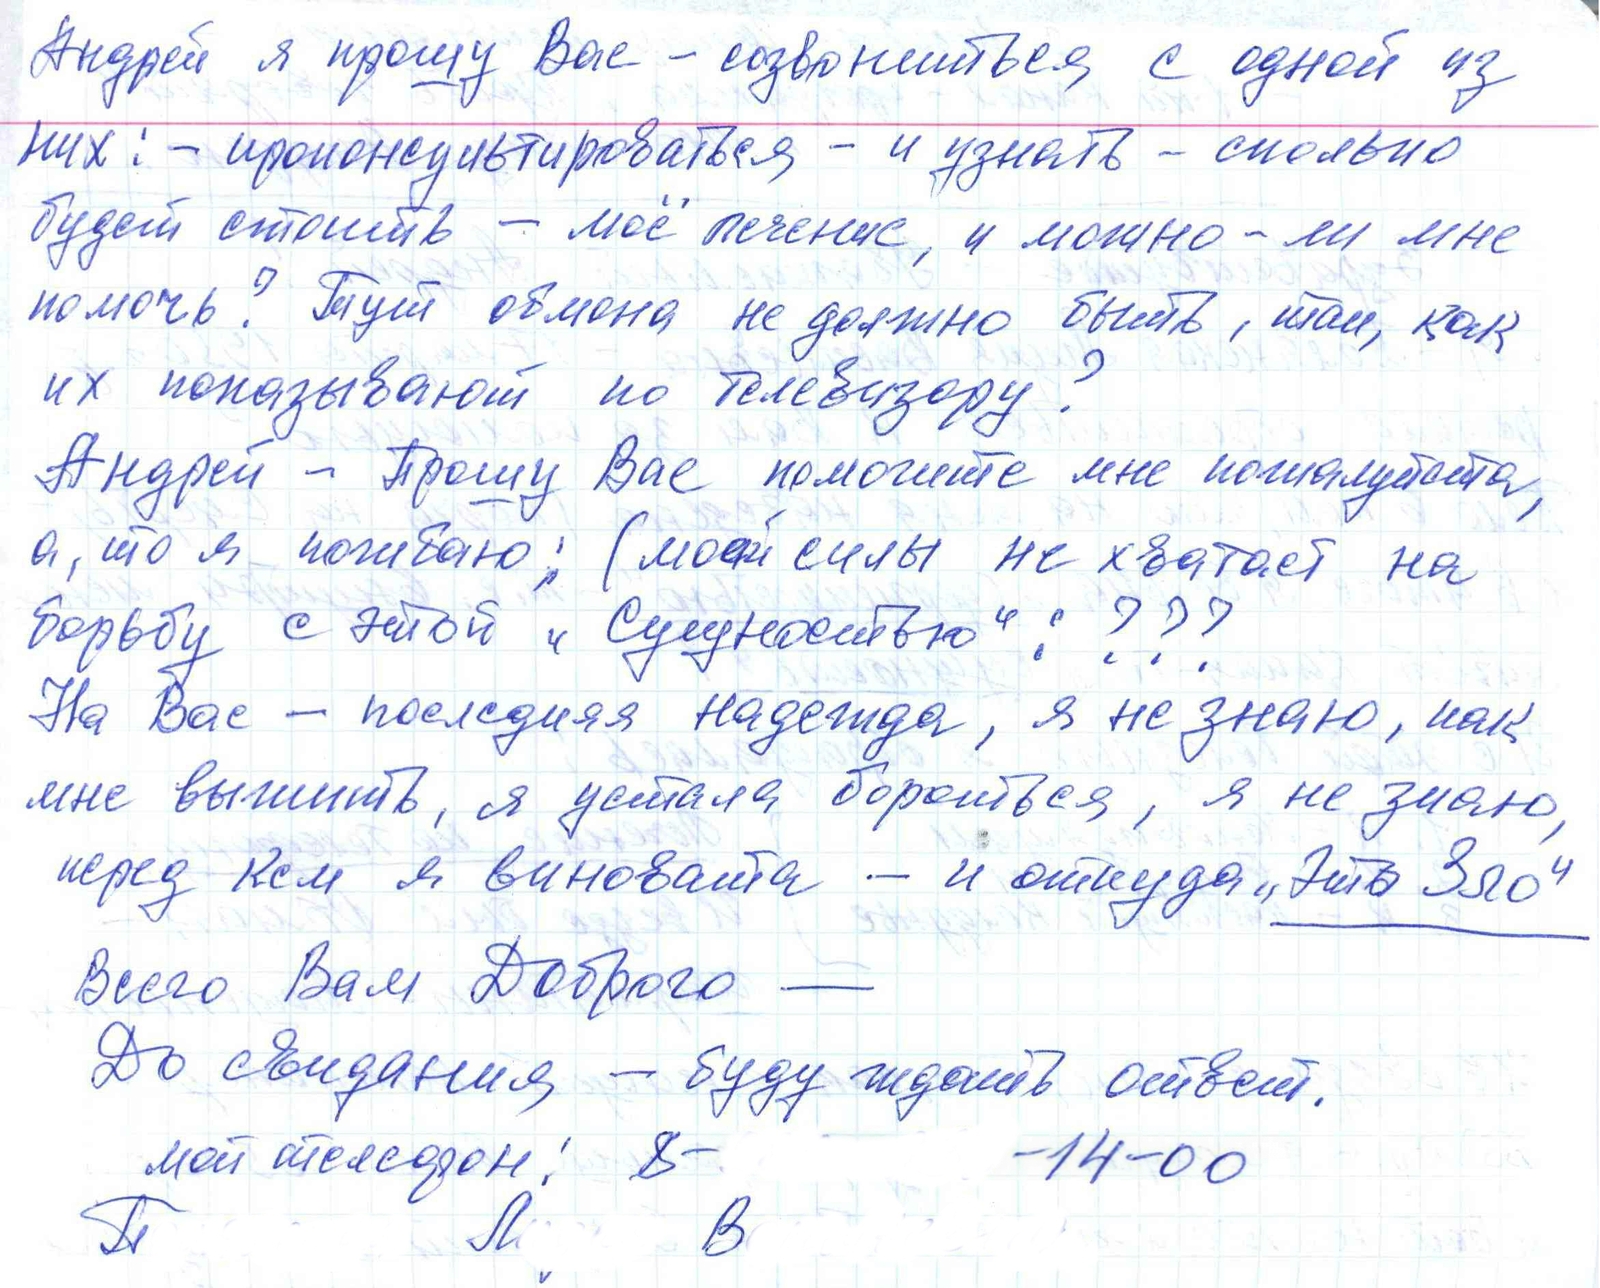 Андрей я прошу Вас – созвониться, с одной из
них: – проконсультироваться – и узнать – сколько
будет стоить – моё лечение, и можно – ли мне
помочь? Тут обмана не должно быть, так, как
их показывают по телевизору?
Андрей – Прошу Вас помогите мне пожалуйста,
а, то я погибаю; (моей силы не хватает на
борьбу с этой „Сущностью“: ???
На Вас – последняя надежда, я не знаю, как
мне выжить, я устала бороться, я не знаю,
перед кем я виновата – и откуда „Это Зло“
Всего Вам Доброго —
До свидания – буду ждать ответ.
мой телефон: 8- -14-00
П Л В